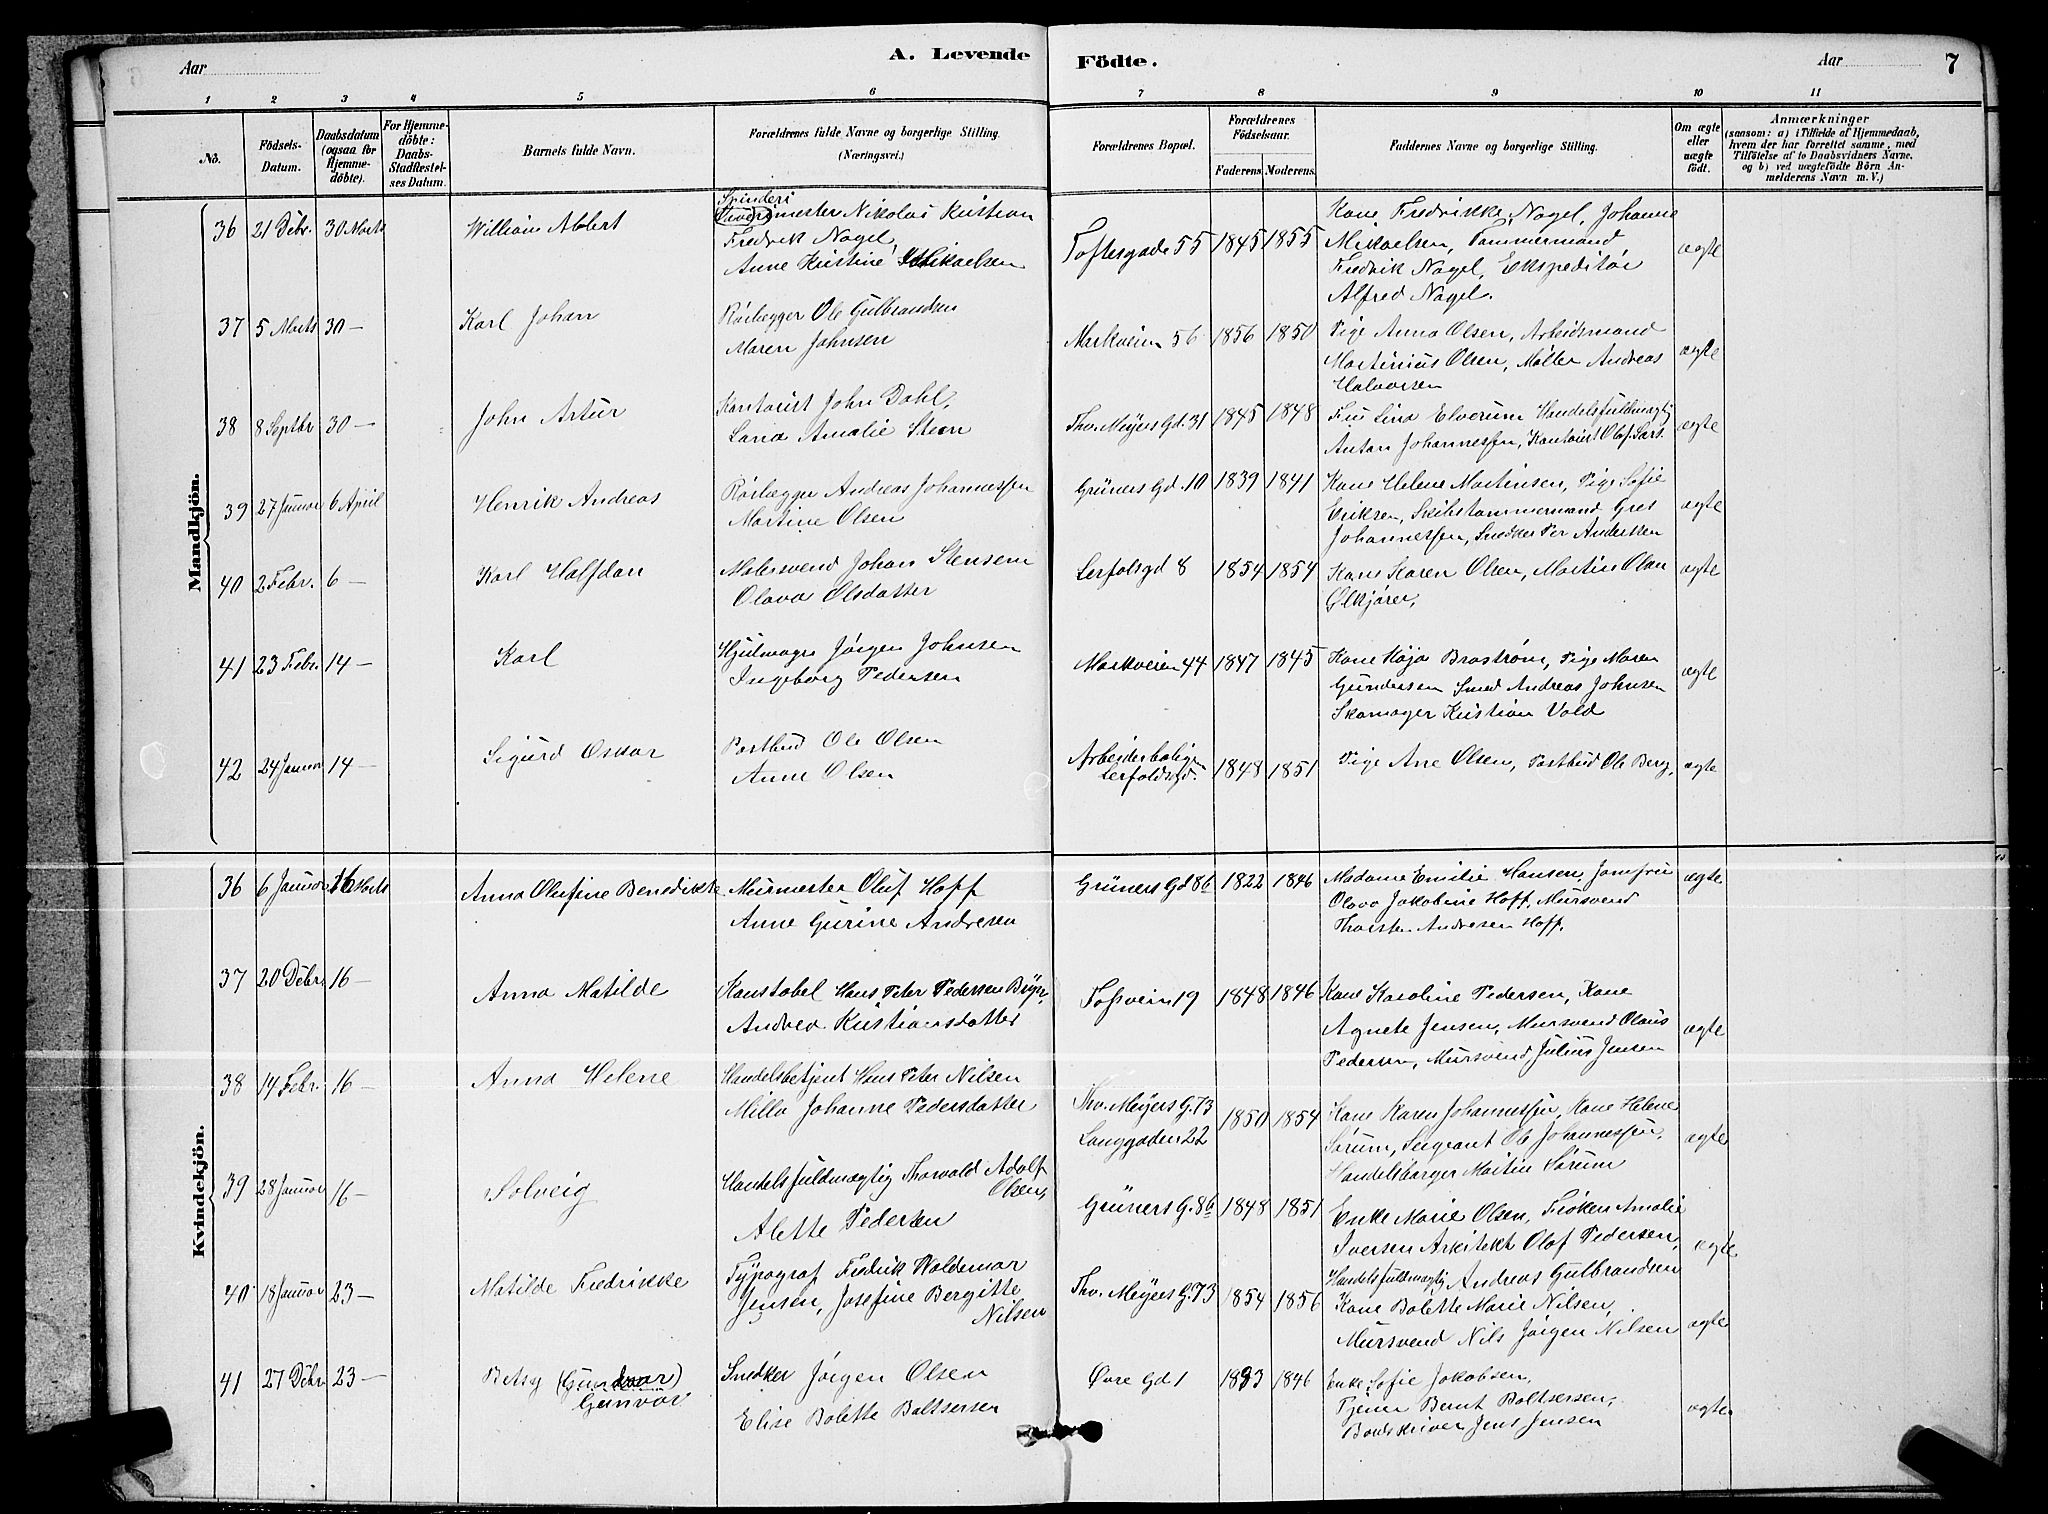 Aar
A. Levende
Födte.
Aar
7
1 2 3 4 5 6 7 8 9 10 11
No.
Födsels-Datum.
Daabsdatum (ogsaa for Hjemme-döbte).
For Hjemme-döbte: Daabs-Stadfæstel-ses Datum.
Barnets fulde Navn.
Forældrenes fulde Navne og borgerlige Stilling.
(Næringsvei.)
Forældrenes Bopæl.
Forældrenes Födselsaar.
Faderens. Moderens.
Faddernes Navne og borgerlige Stilling.
Om ægte eller uægte født.
Anmærkninger
(saasom: a) i Tilfælde af Hjemmedaab, hvem der har forrettet samme, med Tilföielse af to Daabsvidners Navne, og b) ved uægtefödte Börn An-melderens Navn m. V.)
Mandkjön.
36 21 Debr. 30 Marts William Albert
Spinderi mester Nikolai Kristian
Fredrik Nagel,
Anne Kristine Mikaelsen
Toftesgade 55 1845 1855
Kone Fredrikke Nagel, Johanne
Mikaelsen, Tømmermand
Fredrik Nagel, Ekspeditør
Alfred Nagel.
ægte
37 5 Marts 30 — Karl Johan
Rørlægger Ole Gulbrandsen
Maren Johnsen
Markveien 56 1856 1850
Pige Anna Olsen, Arbeidsmand
Martinius Olsen, Møller Andreas
Halvorsen
ægte
38 8 Septbr 30 — John Artur
Kontorist John Dahl,
Lana Amalie Steen
Thv. Meyers Gd. 31 1845 1848
Fru Lina Elverum Handelsfuldmægtig
Anton Johannessen, Kontorist Olaf Sars.
ægte
39 27 Januar 6 April Henrik Andreas
Rørlægger Andreas Johannessen
Martine Olsen
Grüners Gd. 10 1839 1841
Kone Helene Martinsen, Pige Sofie
Eriksen, Skibstømmermand Gres
Johannessen, Snedker Per Andersen
ægte
40 2 Febr. 6 — Karl Halfdan
Malersvend Johan Stensen
Olava Olsdatter
Lerfalsgd 8 1854 1854
Kone Karen Olsen, Martin Olsen
Ølkjører,
ægte
41 23 Febr. 14 — Karl
Hjulmager Jørgen Johnsen
Ingeborg Pedersen
Markveien 44 1847 1845
Kone Kaja Brostrøm, Pige Maren
Gundersen Smed Andreas Johnsen
Skomager Kristian Vold
ægte
42 24 Januar 14 — Sigurd Oskar
Postbud Ole Olsen
Anne Olsen
Arbeiderbolig
Lerfoldsgd. 1848 1851
Pige Ane Olsen, Postbud Ole Berg,
ægte
Kvindekjön.
36 6 Januar 16 Marts Anna Olufine Benedikte
Murmester Oluf Hoff
Anne Gurine Andresen
Grüners Gd 8b 1822 1846
Madame Emilie Hansen, Jomfru
Olava Jakobine Hoff, Mursvend
Thorsten Andresen Hoff.
ægte
37 20 Debr. 16 — Anna Matilde
Konstabel Hans Peter Pedersen
Andrea Kristiansdatter
Fosveien 19 1848 1846
Kone Karoline Pedersen, Kone
Agnete Jensen, Mursvend Olaus
Pedersen, Mursvend Julius Jensen
ægte
38 14 Febr. 16 — Anna Helene
Handelsbetjent Hans Peter Nilsen
Milla Johanne Pedersdatter
Thv. Meyers G. 73
Langgaden 22 1850 1854
Kone Karen Johannessen, Kone Helene
Sørum, Sergeant Ole Johannessen,
Handelsborger Martin Sørum
ægte
39 28 Januar 16 — Solveig
Handelsfuldmægtig Thorvald Adolf
Olsen,
Alette Pedersen
Grüners G. 8b 1848 1851
Enke Marie Olsen, Frøken Amalie
Iversen Arkitekt Olof Pedersen,
Handelsfuldmægtig Andreas Gulbrandsen
ægte
40 18 Januar 23 — Matilde Fredrikke
Typograf Fredrik Waldemar
Jensen, Josefine Bergitte
Nilsen
Thv. Meyers G. 73 1854 1856
Kone Bolette Marie Nilsen,
Mursvend Nils Jørgen Nilsen
ægte
41 27 Debr 23 — Betsy
Gunvor
Snedker Jørgen Olsen
Elise Bolette Baltsersen
Øvre Gd. 1 1846
Enke Sofie Jakobsen,
Tjener Bernt Baltsersen,
Jens Jensen
ægte